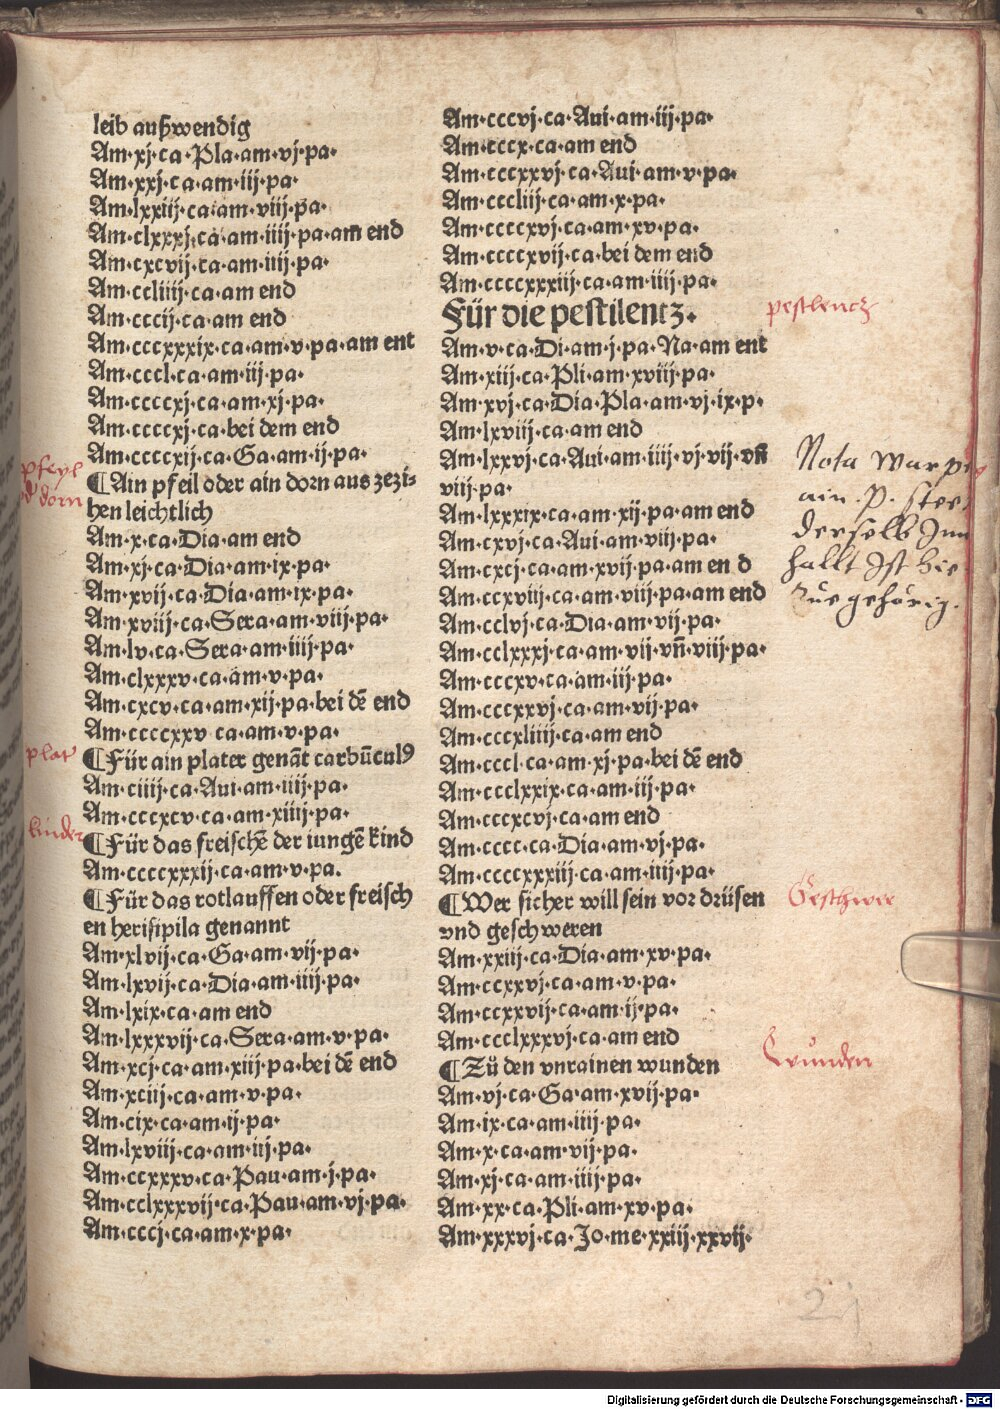 leib außwendig
Am·xj·ca·Pla·am·vj·pa·
Am·xxj·ca·am·iij·pa·
Am·lxxiij·ca·am·viij·pa·
Am·clxxxj·ca·am·iiij·pa·am end
Am·cxcvij·ca·am·iiij·pa·
Am·ccliiij·ca·am end
Am·cccij·ca·am end
Am·cccxxxix·ca·am·v·pa·am ent
Am·cccl·ca·am·iij·pa·
Am·ccccxj·ca·am·xj·pa·
Am·ccccxj·ca·bei dem end
Am·ccccxij·ca·Ga·am·ij·pa·
¶Ain pfeil oder ain dorn aus zezi⸗
hen leichtlich
Am·x·ca·Dia·am end
Am·xj·ca·Dia·am·ix·pa·
Am·xvij·ca·Dia·am·ix·pa·
Am·xviij·ca·Sera·am·viij·pa·
Am·lv·ca·Sera·am·iiij·pa·
Am·clxxxv·ca·am·v·pa·
Am·cxcv·ca·am·xij·pa·bei dē end
Am·ccccxxv ca·am·v·pa·
¶Für ain plater genāt carbūculꝰ
Am·ciiij·ca·Aui·am·iiij·pa·
Am·cccxcv·ca·am·xiiij·pa·
¶Für das freischē der iungē kind
Am·ccccxxxij·ca·am·v·pa.
¶Für das rotlauffen oder freisch
en herisipila genannt
Am·xlvij·ca·Ga·am·vij·pa·
Am·lxvij·ca·Dia·am·iiij·pa·
Am·lxix·ca·am end
Am·lxxxvij·ca·Sera·am·v·pa·
Am·xcj·ca·am·xiij·pa·bei dē end
Am·xciij·ca·am·v·pa·
Am·cix·ca·am·ij·pa·
Am·lxviij·ca·am·iij·pa·
Am·ccxxxv·ca·Pau·am·j·pa·
Am·cclxxxvij·ca·Pau·am·vj·pa·
Am·cccj·ca·am·x·pa·
pfeyl
dorn
plat
kinder
Am·cccvj·ca·Aui·am·iij·pa·
Am·cccx·ca·am end
Am·cccxxvj·ca·Aui·am·v·pa·
Am·cccliij·ca·am·x·pa·
Am·ccccxvj·ca·am·xv·pa·
Am·ccccxvij·ca·bei dem end
Am·ccccxxxiij·ca·am·iiij·pa·
Für die pestilentz·
Am·v·ca·Di·am·j·pa·Na·am ent
Am·xiij·ca·Pli·am·xviij·pa·
Am·xvj·ca·Dia·Pla·am·vj·ix·p·
Am·lxviij·ca·am end
Am·lxxvj·ca·Aui·am·iiij·vj·vij·vn̄
viij·pa·
Am·lxxxix·ca·am·xij·pa·am end
Am·cxvj·ca·Aui·am·viij·pa·
Am·cxcj·ca·am·xvij·pa·am en d
Am·ccxviij·ca·am·viij·pa·am end
Am·cclvj·ca·Dia·am·vij·pa·
Am·cclxxxj·ca·am·vij·vn̄·viij·pa·
Am·cccxv·ca·am·iij·pa·
Am·cccxxvj·ca·am·vij·pa·
Am·cccxliiij·ca·am end
Am·cccl·ca·am·xj·pa·bei dē end
Am·ccclxxix·ca·am·iij·pa·
Am·cccxcvj·ca·am end
Am·cccc·ca·Dia·am·vj·pa·
Am·ccccxxxiij·ca·am·iiij·pa·
¶Wer sicher will sein vor drüsen
vnd geschweren
Am·xxiij·ca·Dia·am·xv·pa·
Am·ccxxvj·ca·am·v·pa·
Am·ccxxvij·ca·am·ij·pa·
Am·ccclxxxvj·ca·am end
¶Zů den vnrainen wunden
Am·vj·ca·Ga·am·xvij·pa·
Am·ix·ca·am·iiij·pa·
Am·x·ca·am·vij·pa·
Am·xj·ca·am·iiij·pa·
Am·xx·ca·Pli·am·xv·pa·
Am·xxxvj·ca·Jo·me·xxiij·xxvij·
pestlentz
Nota
ain .p.
derselb
hallt Ist
gehörig.
Wunden
Digitalisierung gefördert durch die Deutsche Forschungsgemeinschaft - DFG